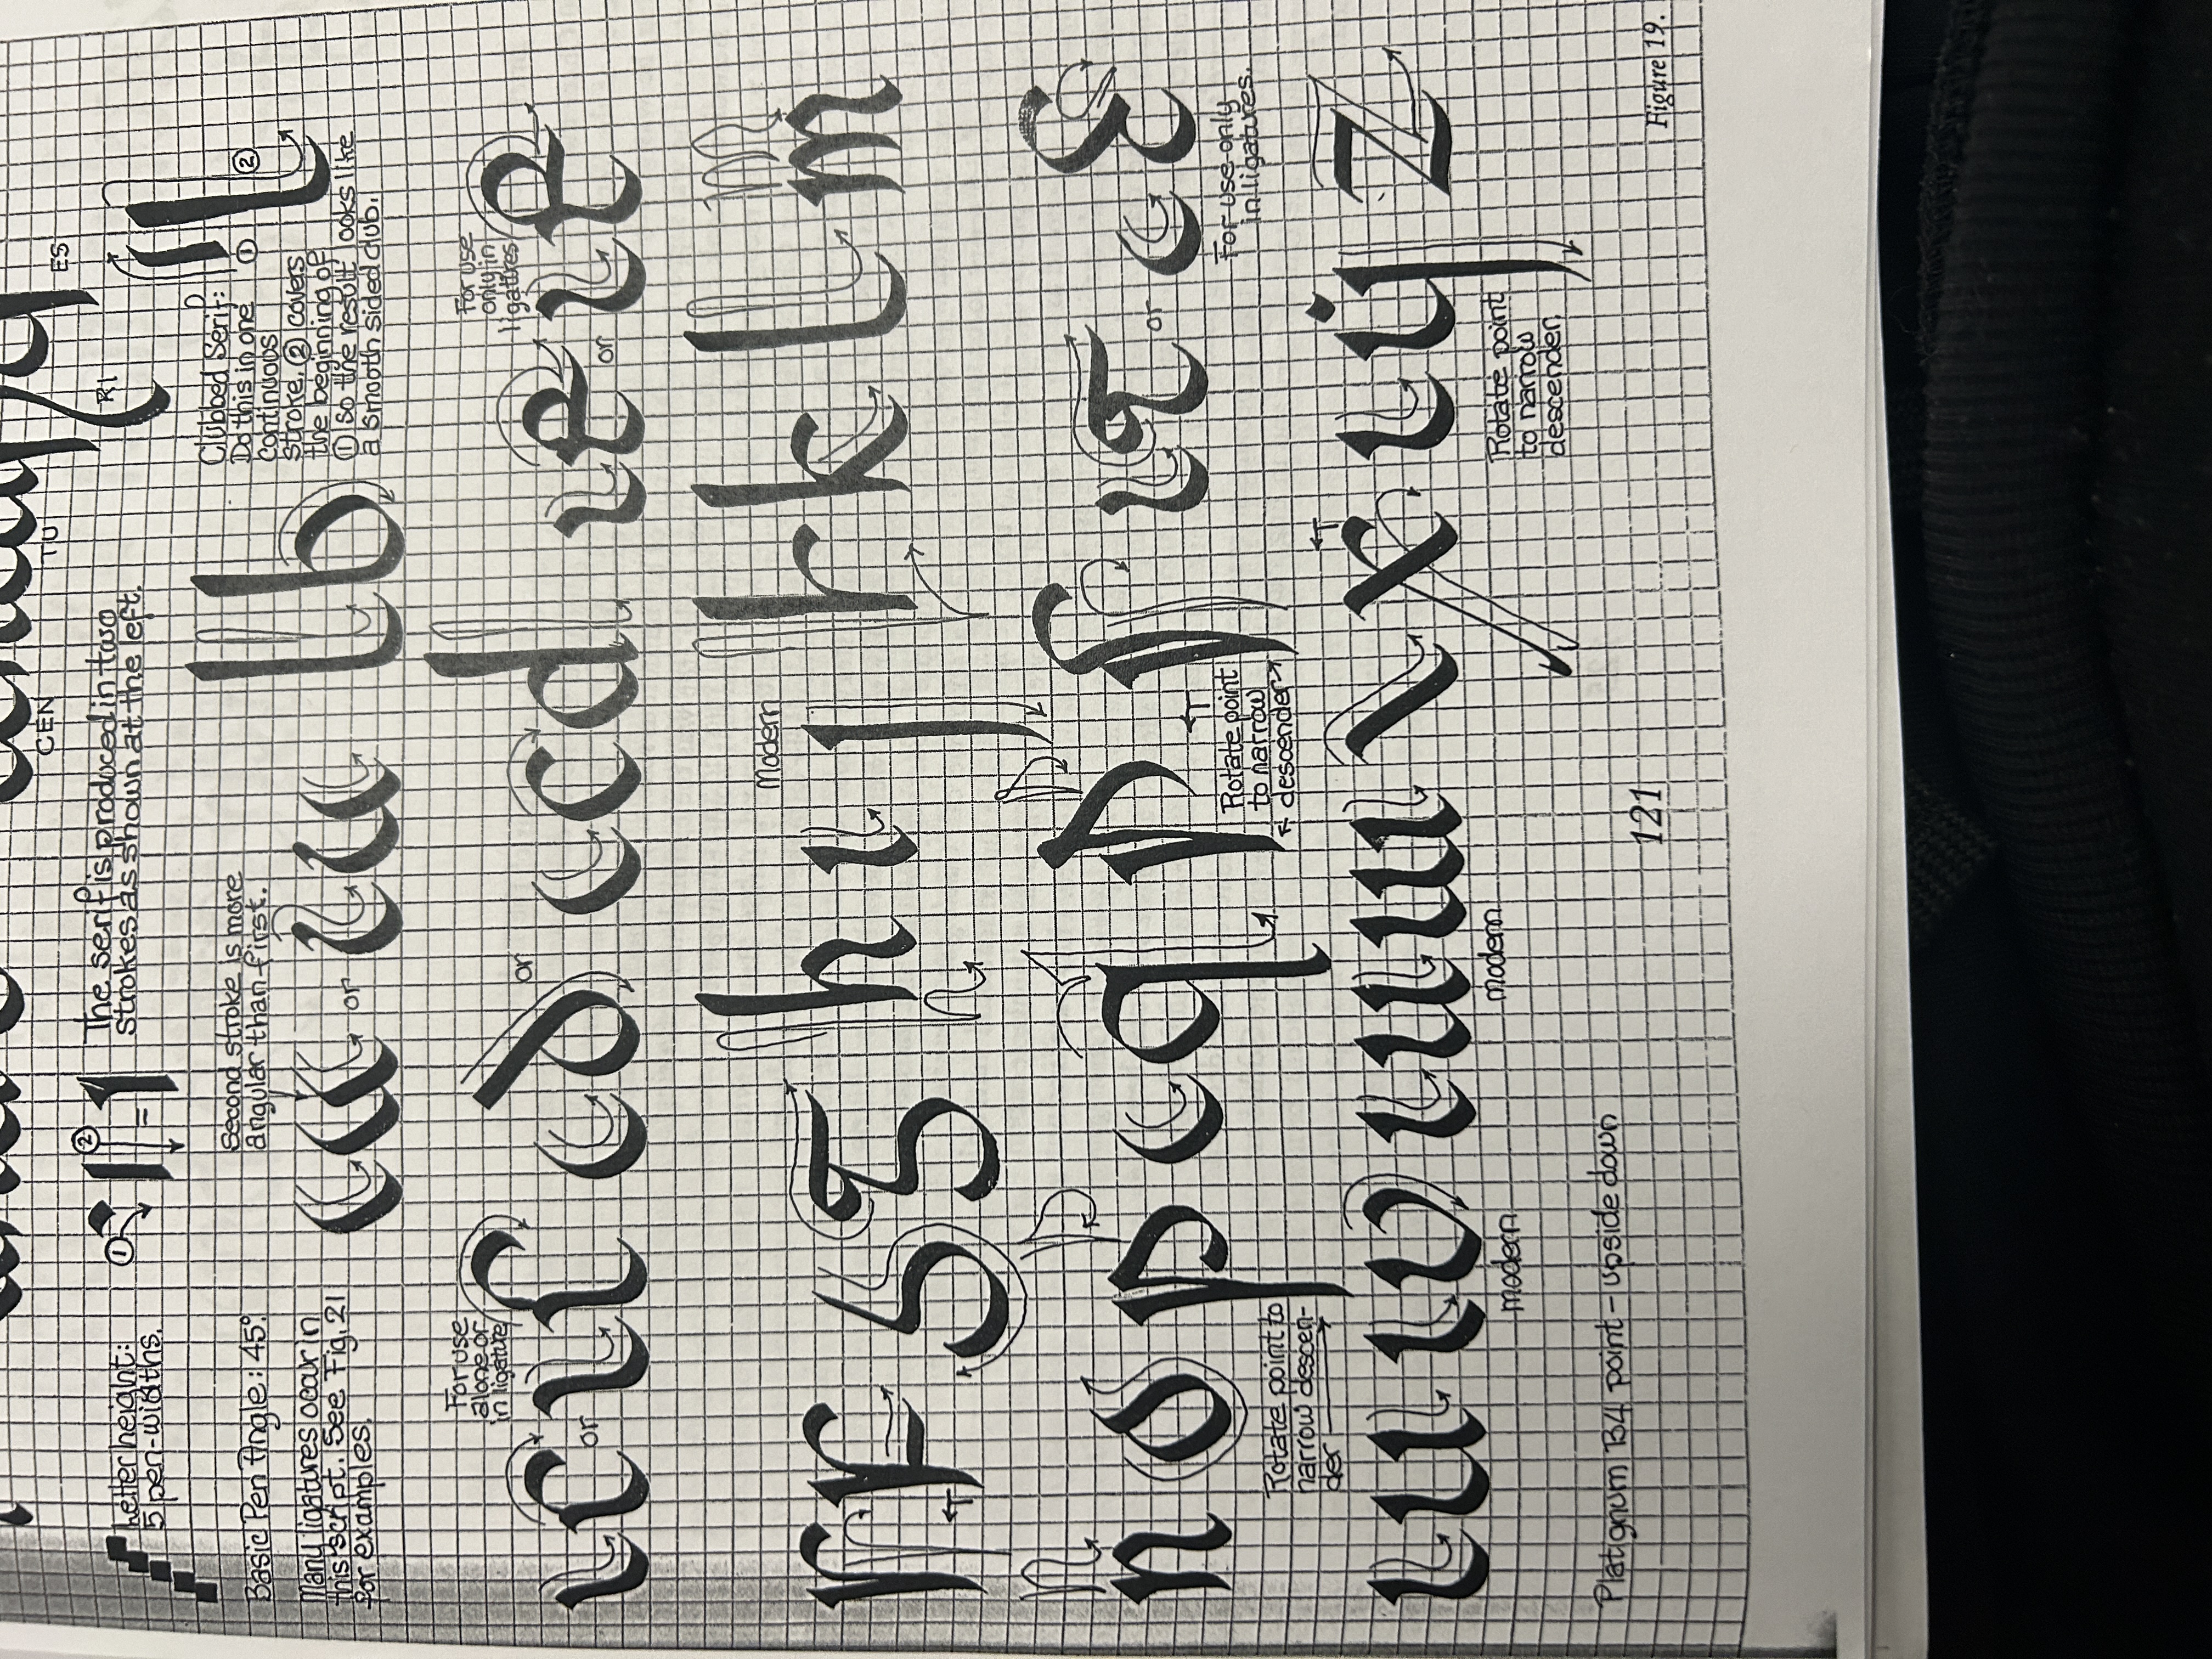 CEN TU RI ES
Letter height:
5 pen-widths.
① ② = The serif is produced in two
strokes as shown at the left.
Clubbed Serif:
Do this in one ①
continuous
stroke. ② covers
the beginning of
① so the result looks like
a smooth sided club.
②
Basic Pen Angle: 45°.
Second stroke is more
angular than first.
Many ligatures occur in
this script. See Fig. 21
for examples.
a or a b
For use
alone or
in ligature
For use
only in
ligatures
c or c d or d e or e
Modern
f g h i j k l m
n o p q r s or t
Rotate point to
narrow descen-
der
Rotate point
to narrow
descender
For use only
in ligatures.
u v w w x y z
modern
modern
Rotate point
to narrow
descender.
Platignum B4 point - upside down
121
Figure 19.